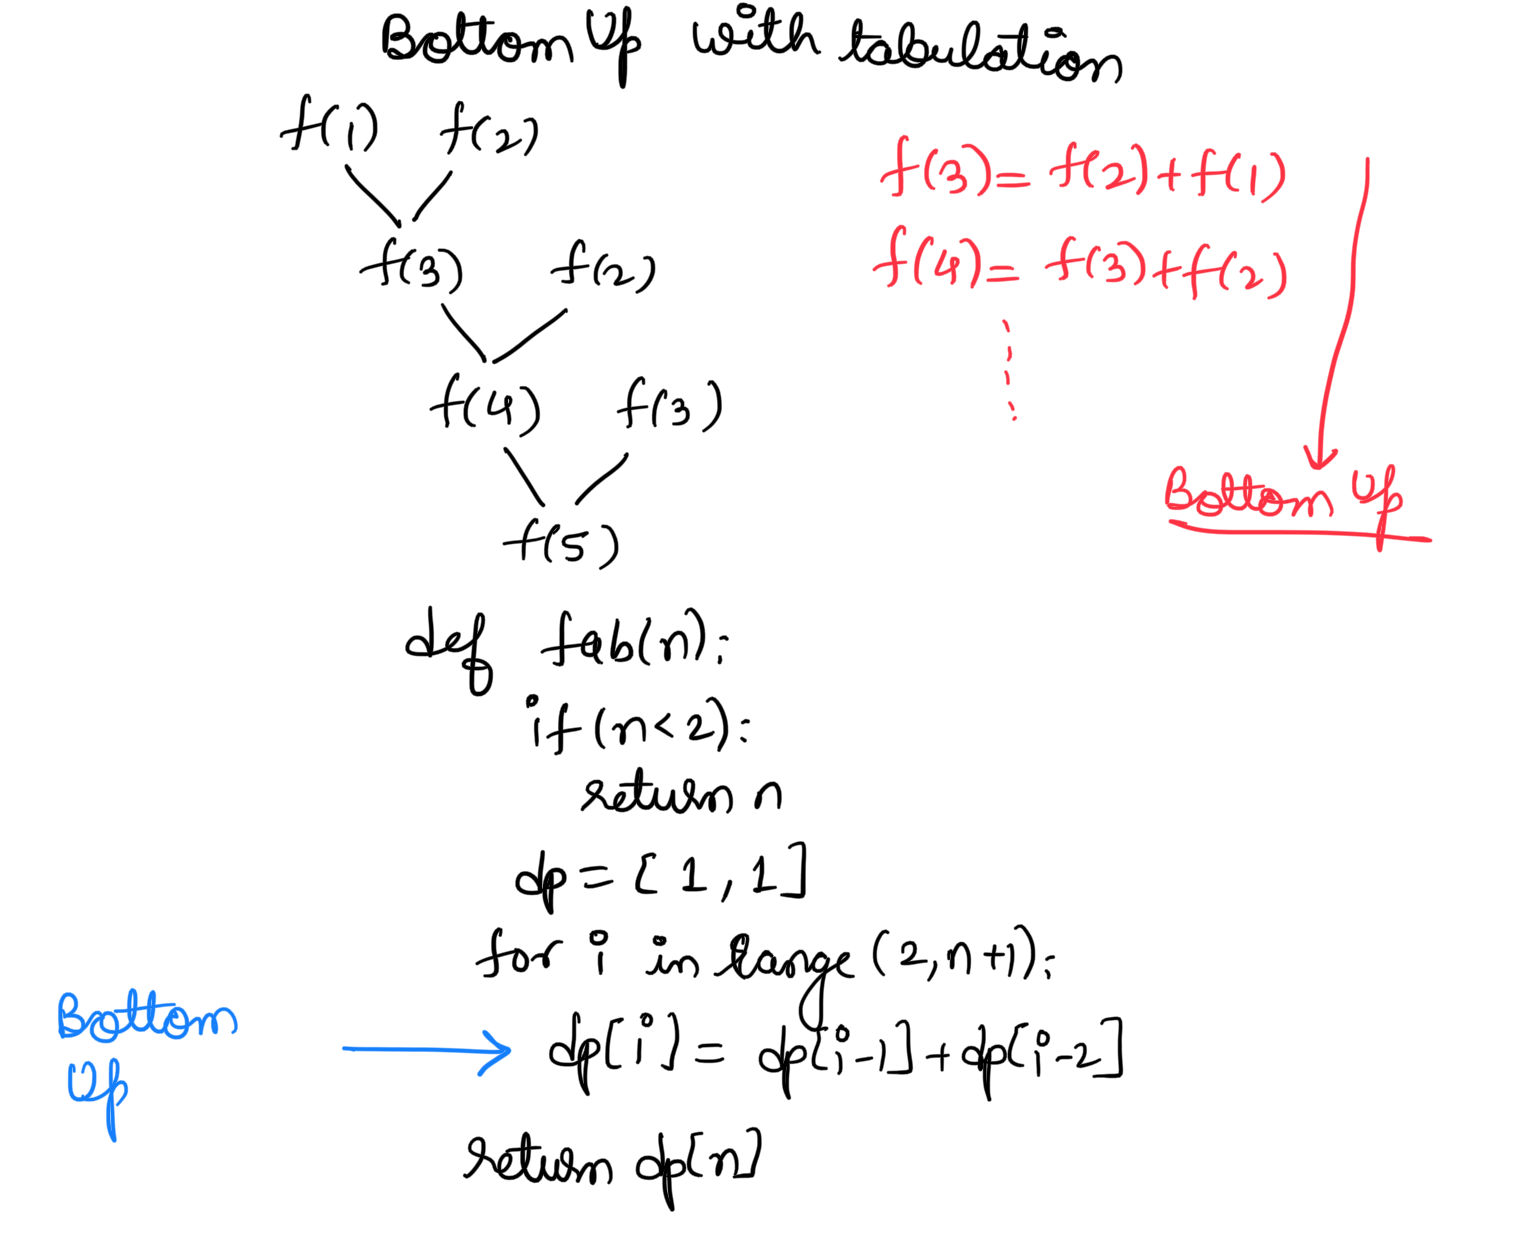 Bottom Up with tabulation
f(1) f(2)
f(3) f(2)
f(4) f(3)
f(5)
f(3) = f(2)+f(1)
f(4) = f(3)+f(2)
Bottom Up
def fab(n):
if (n<2):
return n
dp = [1,1]
for i in range (2,n+1):
Bottom
Up
dp[i] = dp[i-1]+dp[i-2]
return dp[n]